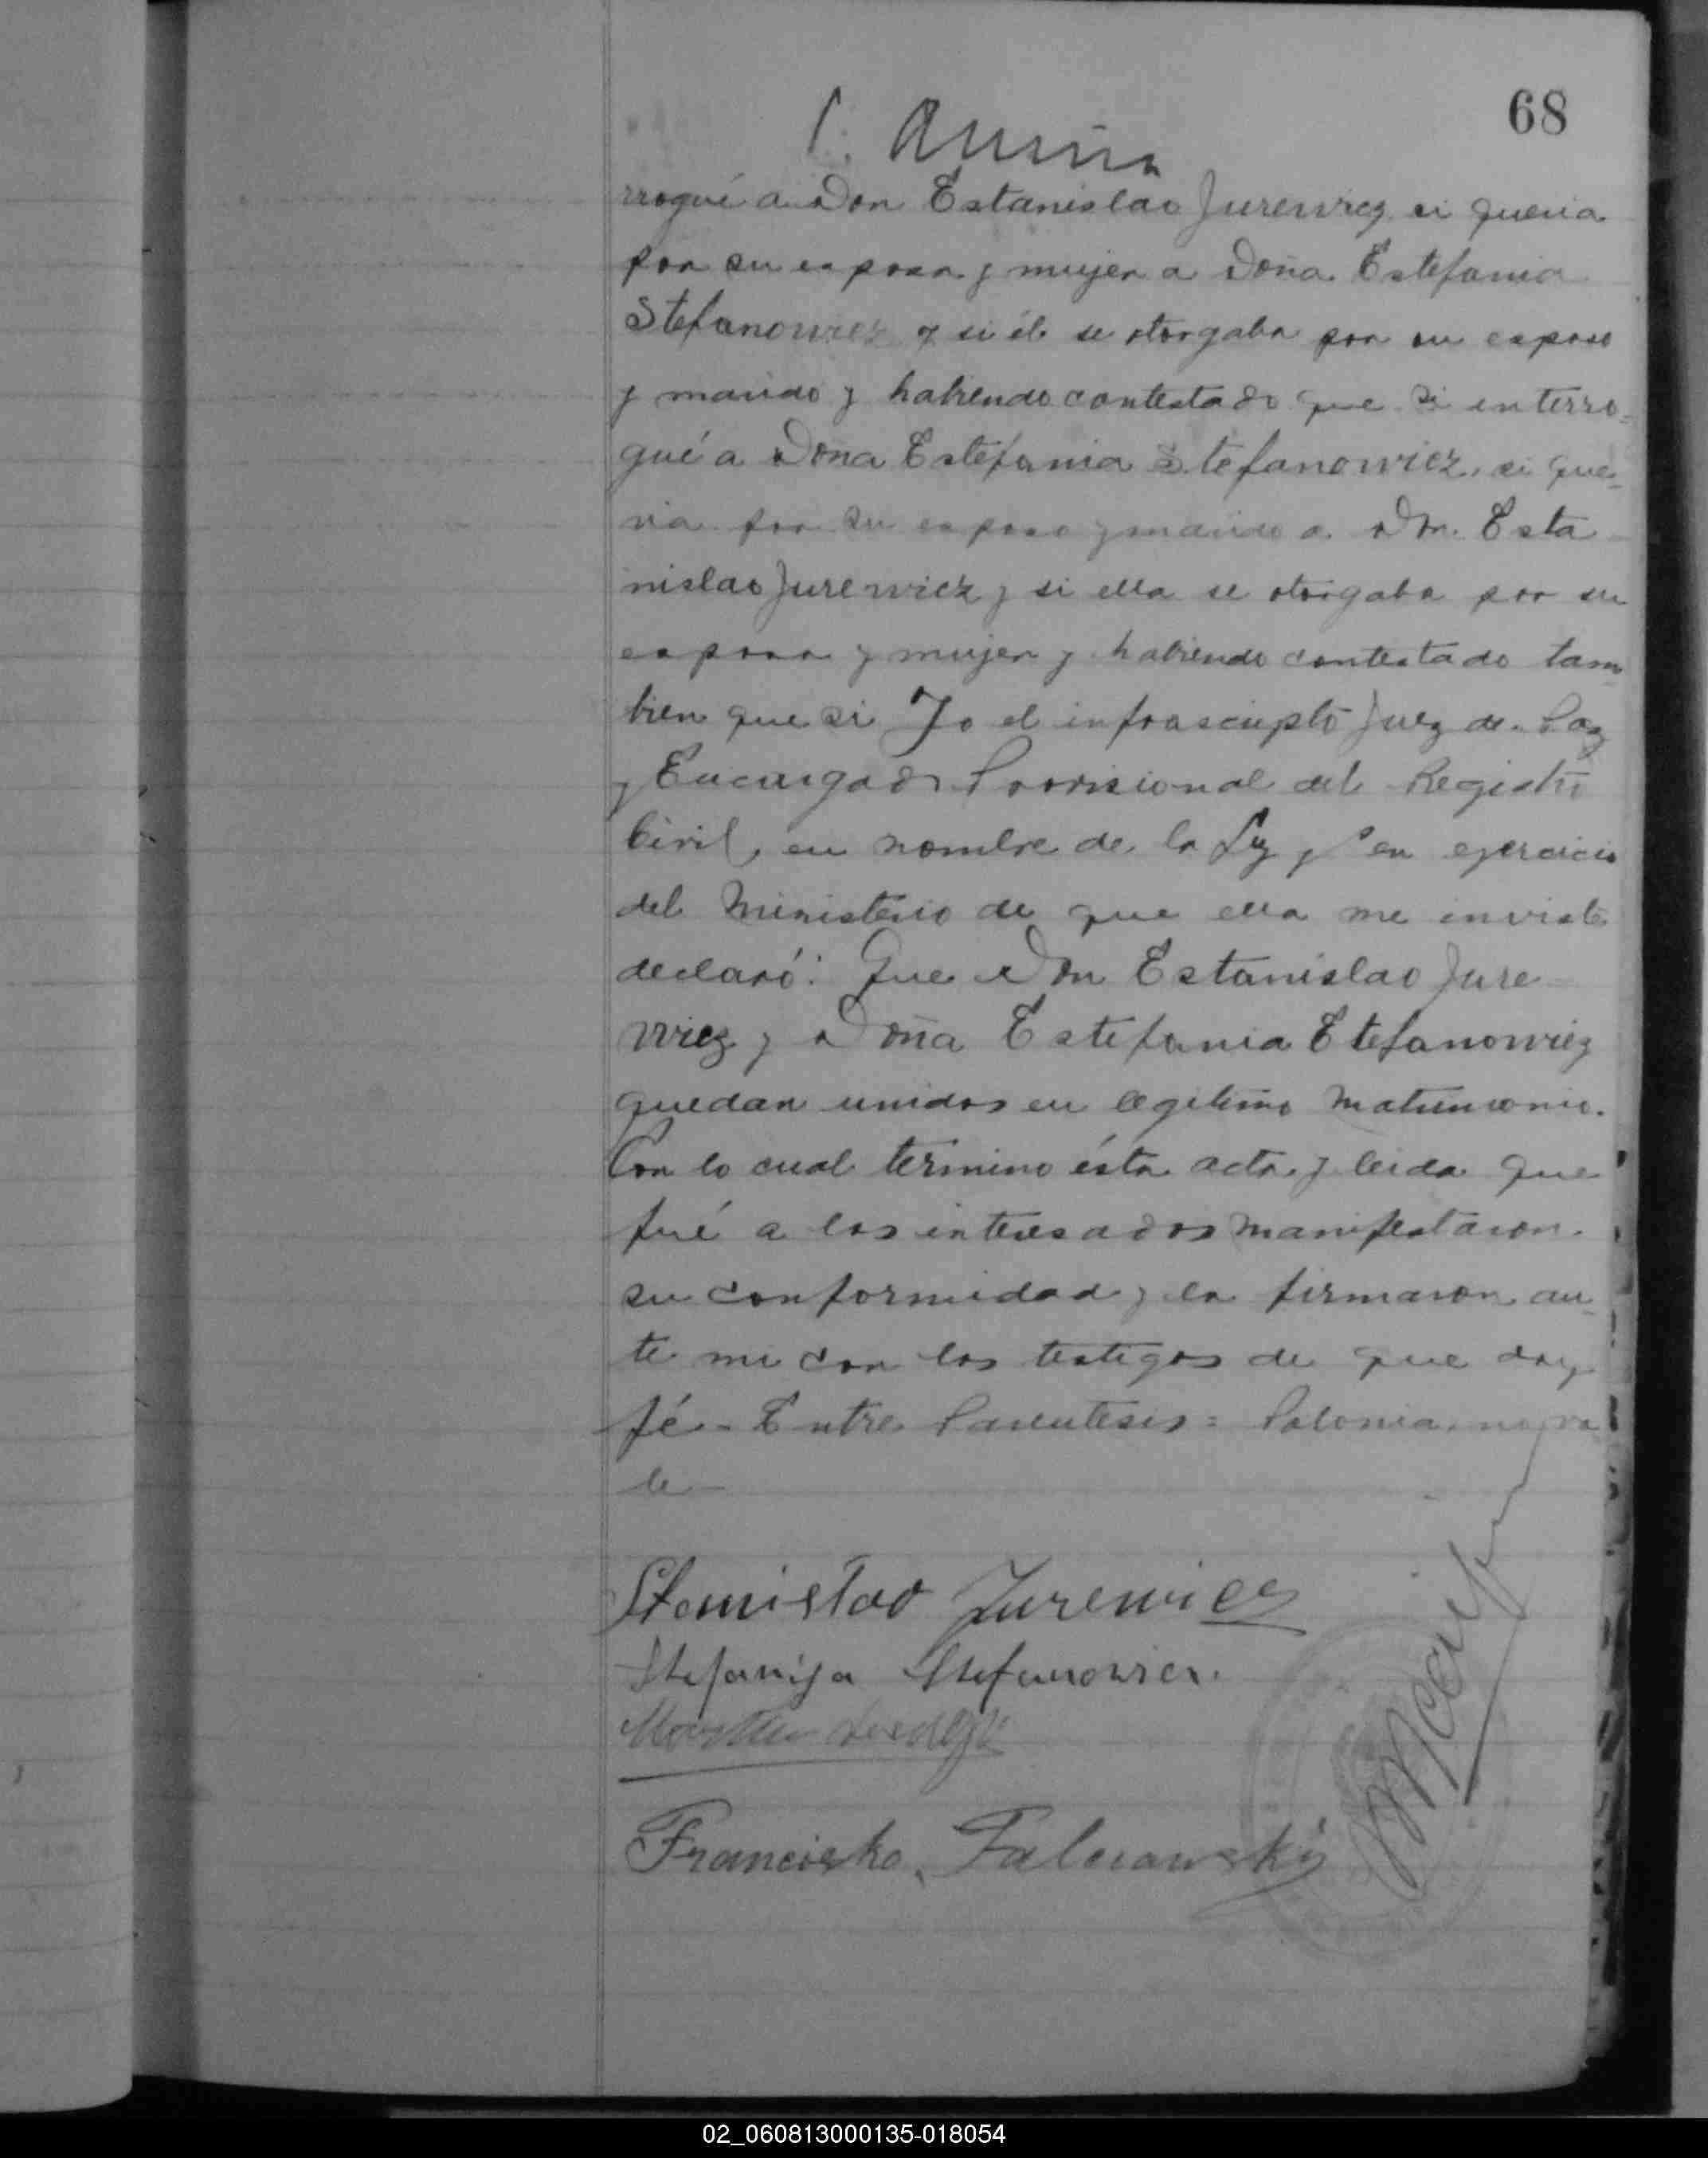 68
rrogué a Don Estanislao Jurewicz si queria
por su esposa y mujer a Doña Estefania
Stefanowicz y si él se otorgaba por su esposo
y marido y habiendo contestado que si interro=
gué a Doña Estefania Stefanowicz, si que=
ria por su esposo y marido a Dn. Esta
nislao Jurewicz y si ella se otorgaba por su
esposa y mujer y habiendo contestado tam=
bien que si Yo el infrascripto Juez de Paz
y Encargado Provisional del Registro
Civil, en nombre de la Ley y en ejercicio
del Ministerio de que ella me inviste
declaró: Que Don Estanislao Jure-
wicz y Doña Estefania Etefanowicz
quedan unidos en legitimo Matrimonio.
Con lo cual termino ésta acta y leida que
fué a los interesados manifestaron
su conformidad y la firmaron an=
te mi con los testigos de que doy
fé - Entre Parentesis = Polonia, no va
le -
Stanislao Jurewicz
Stefanija Stefanowicz.
Francisko
02_060813000135-018054